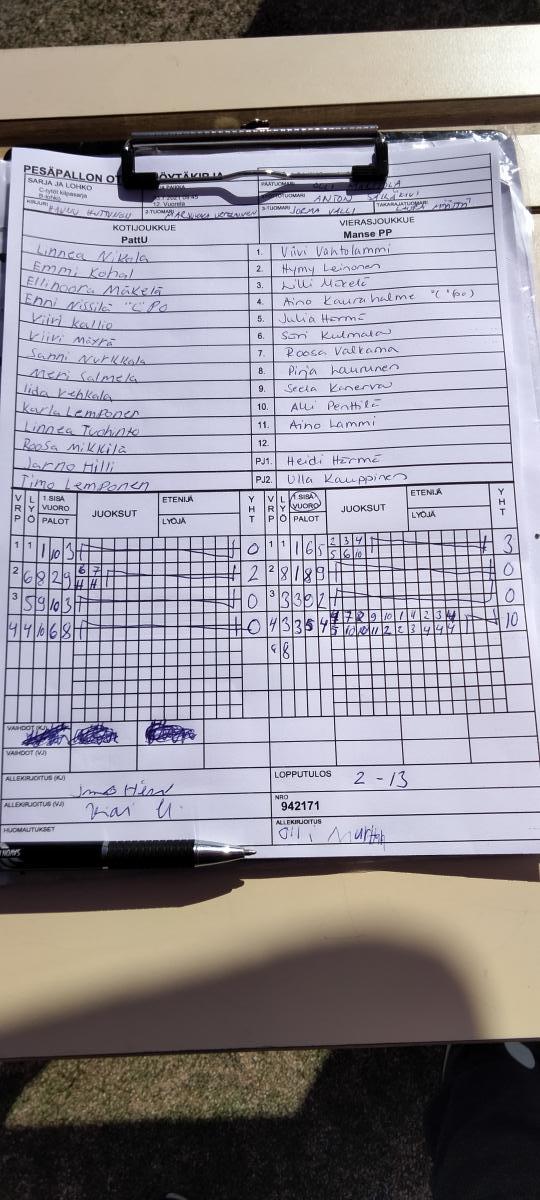 PESÄPALLON OT
SARJA JA LOHKO
C-tytöt kilpasarja
12. Vuorlita
PÄÄTUOMARI
ANTON SÄILÄKIVI
KIRJURI
2-TUOMARI
3-TUOMARI JORMA VALLI TAKARAJATUOMARI
KOTIJOUKKUE VIERASJOUKKUE
PattU Manse PP
Linnea Nikola 1. Viivi Vahtolammi
Emmi Kohal 2. Hymy Leinonen
Ellinoora Mäkelä 3. Lilli Mäkelä
Enni Nissilä "C" PO 4. Aino Kaurahalme "C" (po)
Viivi Kallio 5. Julia Harmä
Viivi Mäyrä 6. Suri Kulmala
Sanni Nurkkala 7. Roosa Valkama
Meri Salmela 8. Pinja Laurunen
Iida Vehkala 9. Seela Kanerva
Karla Lemponen 10. Alli Penttilä
Linnea Tuohinto 11. Aino Lammi
Roosa Mikkilä 12.
Jarno Hilli PJ1. Heidi Harmä
Timo Lemponen PJ2. Ulla Kauppinen
VRP LYÖ 1.SISÄ VUORO PALOT JUOKSUT ETENIJÄ LYÖJÄ YHT VRP LYÖ 1.SISÄ VUORO PALOT JUOKSUT ETENIJÄ LYÖJÄ YHT
1 1 1 10 3 0 1 1 1 6 5 2 3 4 3
5 6 10
2 6 8 2 9 6 7 2 2 8 1 8 9 0
3 5 9 10 3 0 3 3 3 9 2 0
4 4 10 6 8 0 4 3 3 5 4 7 8 9 10 1 4 2 3 4 10
5 10 10 11 2 2 3 4 4 4
8
VAIHDOT (KJ)
VAIHDOT (VJ)
ALLEKIRJOITUS (KJ) LOPPUTULOS 2 - 13
ALLEKIRJOITUS (VJ) NRO
942171
HUOMAUTUKSET ALLEKIRJOITUS
Olli